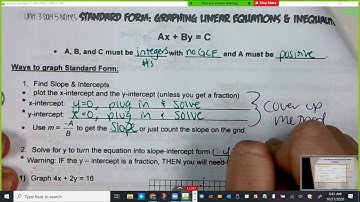 Unit 3 Day 5 Notes STANDARD FORM: GRAPHING LINEAR EQUATIONS & INEQUALI
Ax + By = C
• A, B, and C must be integers with no GCF and A must be positive.
#'s
Ways to graph Standard Form:
1. Find Slope & Intercepts
• plot the x-intercept and the y-intercept (unless you get a fraction)
• x-intercept: y=0, plug in & solve
• y-intercept: x=0, plug in & solve
cover up method
• Use m = -A/B to get the slope or just count the slope on the grid.
2. Solve for y to turn the equation into slope-intercept form (y
• Warning: IF the y – intercept is a fraction, THEN you will need
1) Graph 4x + 2y = 16
9:45 AM
10/27/2020